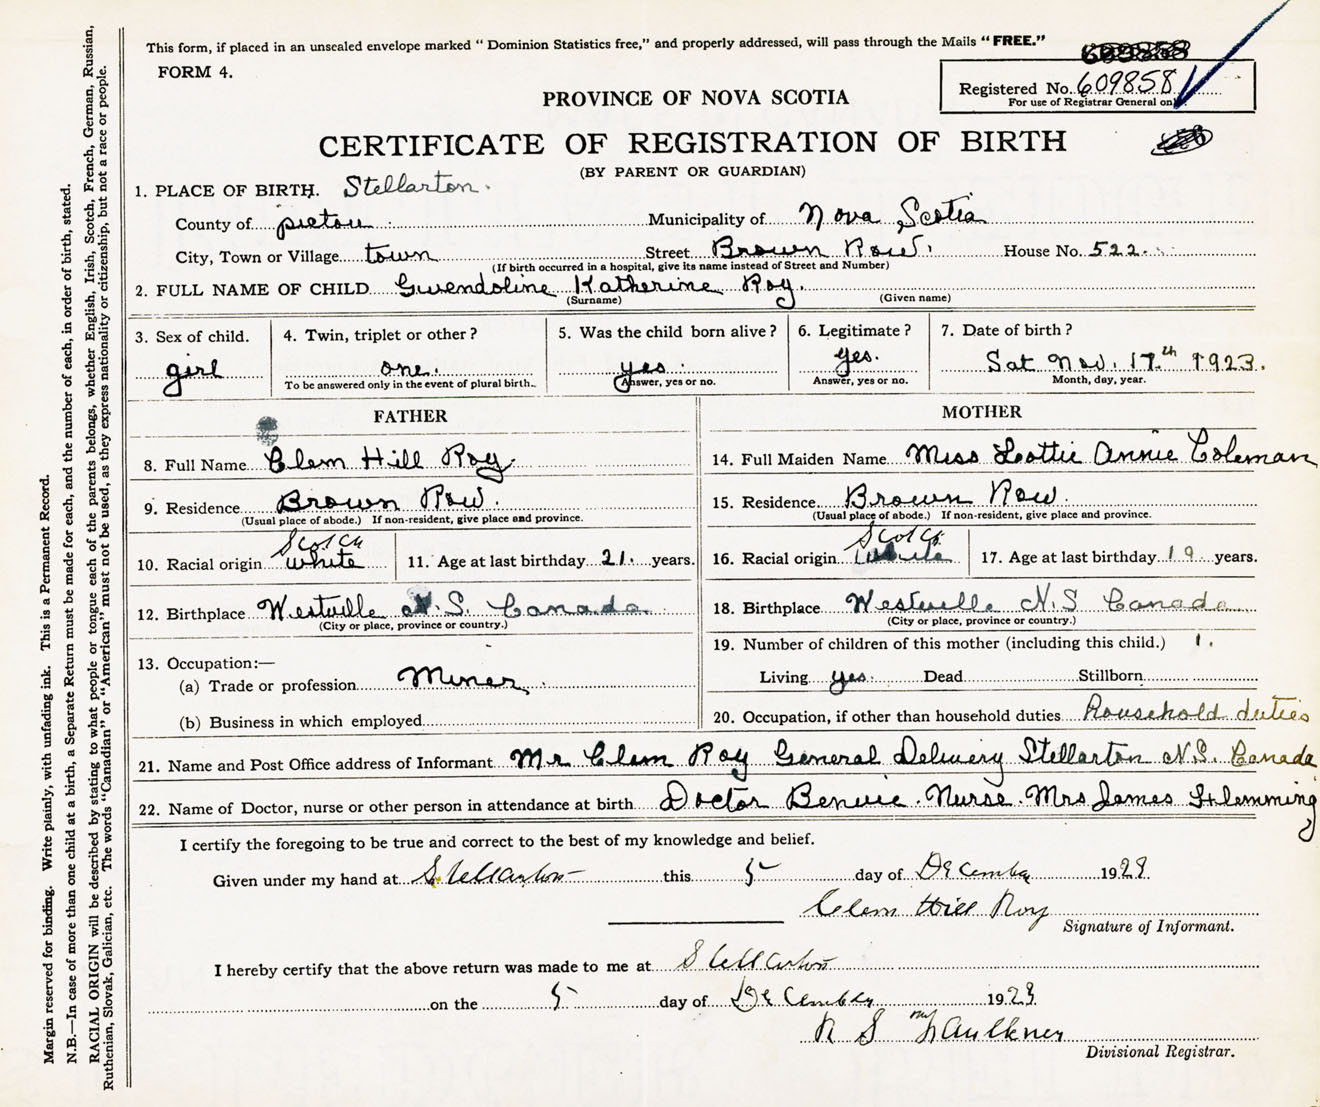 This form, if placed in an unsealed envelope marked “ Dominion Statistics free,” and properly addressed, will pass through the Mails “FREE.”
FORM 4.
Registered No. 609858
For use of Registrar General only
PROVINCE OF NOVA SCOTIA
CERTIFICATE OF REGISTRATION OF BIRTH
(BY PARENT OR GUARDIAN)
1. PLACE OF BIRTH. Stellarton.
County of pictou Municipality of Nova Scotia
City, Town or Village town Street Brown Row. House No. 522.
(If birth occurred in a hospital, give its name instead of Street and Number)
2. FULL NAME OF CHILD Gwendoline Katherine Roy.
(Surname) (Given name)
3. Sex of child. 4. Twin, triplet or other ? 5. Was the child born alive ? 6. Legitimate ? 7. Date of birth ?
girl one. yes. yes. Sat Nov. 17th 1923.
To be answered only in the event of plural birth. Answer, yes or no. Answer, yes or no. Month, day, year.
FATHER
8. Full Name Clem Hill Roy.
9. Residence Brown Row.
(Usual place of abode.) If non-resident, give place and province.
Scotch
10. Racial origin white 11. Age at last birthday 21. years.
12. Birthplace Westville N.S. Canada
(City or place, province or country.)
13. Occupation:—
(a) Trade or profession Miner
(b) Business in which employed
MOTHER
14. Full Maiden Name Miss Lottie Annie Coleman
15. Residence Brown Row.
(Usual place of abode.) If non-resident, give place and province.
Scotch
16. Racial origin White 17. Age at last birthday 19 years.
18. Birthplace Westville N.S Canada
(City or place, province or country.)
19. Number of children of this mother (including this child.) 1.
Living yes. Dead Stillborn
20. Occupation, if other than household duties Household duties
21. Name and Post Office address of Informant Mr Clem Roy General Delivery Stellarton N.S. Canada
22. Name of Doctor, nurse or other person in attendance at birth Doctor Benvie. Nurse. Mrs James Flemming
I certify the foregoing to be true and correct to the best of my knowledge and belief.
Given under my hand at Stellarton this 5 day of December 1923.
Clem Hill Roy
Signature of Informant.
I hereby certify that the above return was made to me at Stellarton
on the 5 day of December 1923.
Faulkner
Divisional Registrar.
Margin reserved for binding. Write plainly, with unfading ink. This is a Permanent Record.
N.B.—In case of more than one child at a birth, a Separate Return must be made for each, and the number of each, in order of birth, stated.
RACIAL ORIGIN will be described by stating to what people or tongue each of the parents belongs, whether English, Irish, Scotch, French, German, Russian,
Ruthenian, Slovak, Galician, etc. The words “Canadian” or “American” must not be used, as they express nationality or citizenship, but not a race or people.